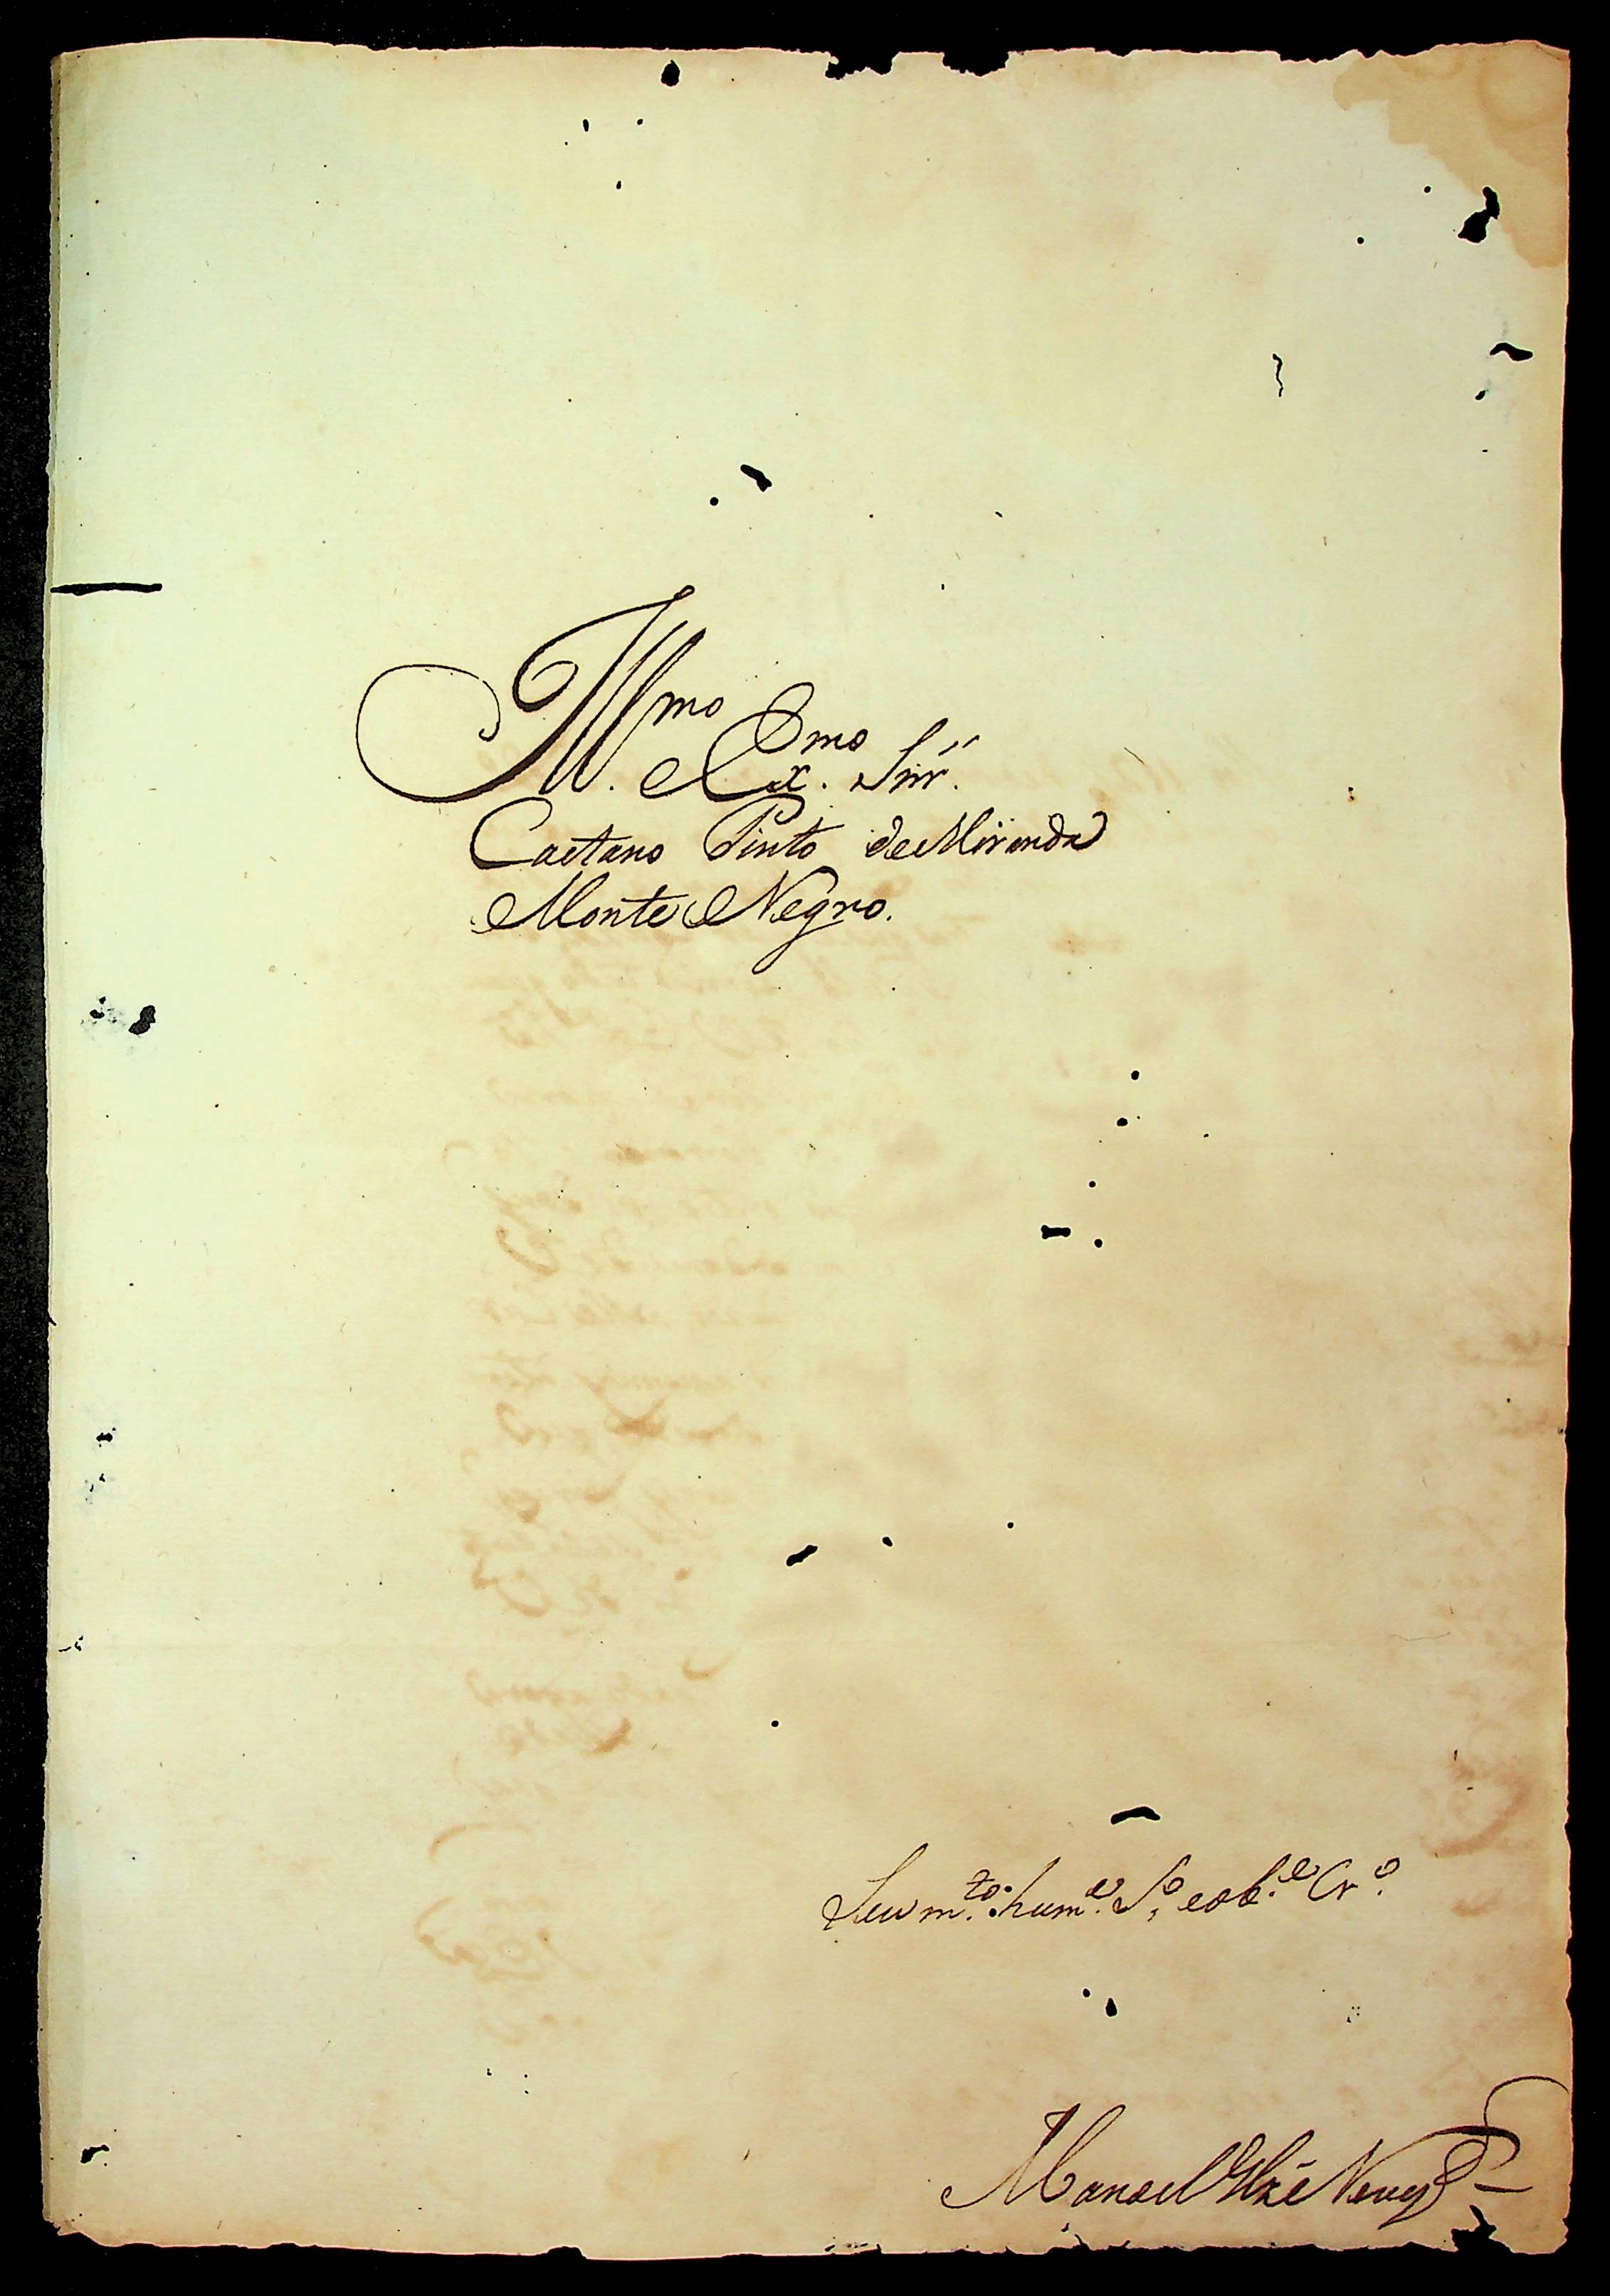 Ill.mo Ex.mo Snr.
Caetano Pinto de Miranda
Monte Negro.
Seu m.to hum.e S.o e ob.e Cr.o
Manoel Neves